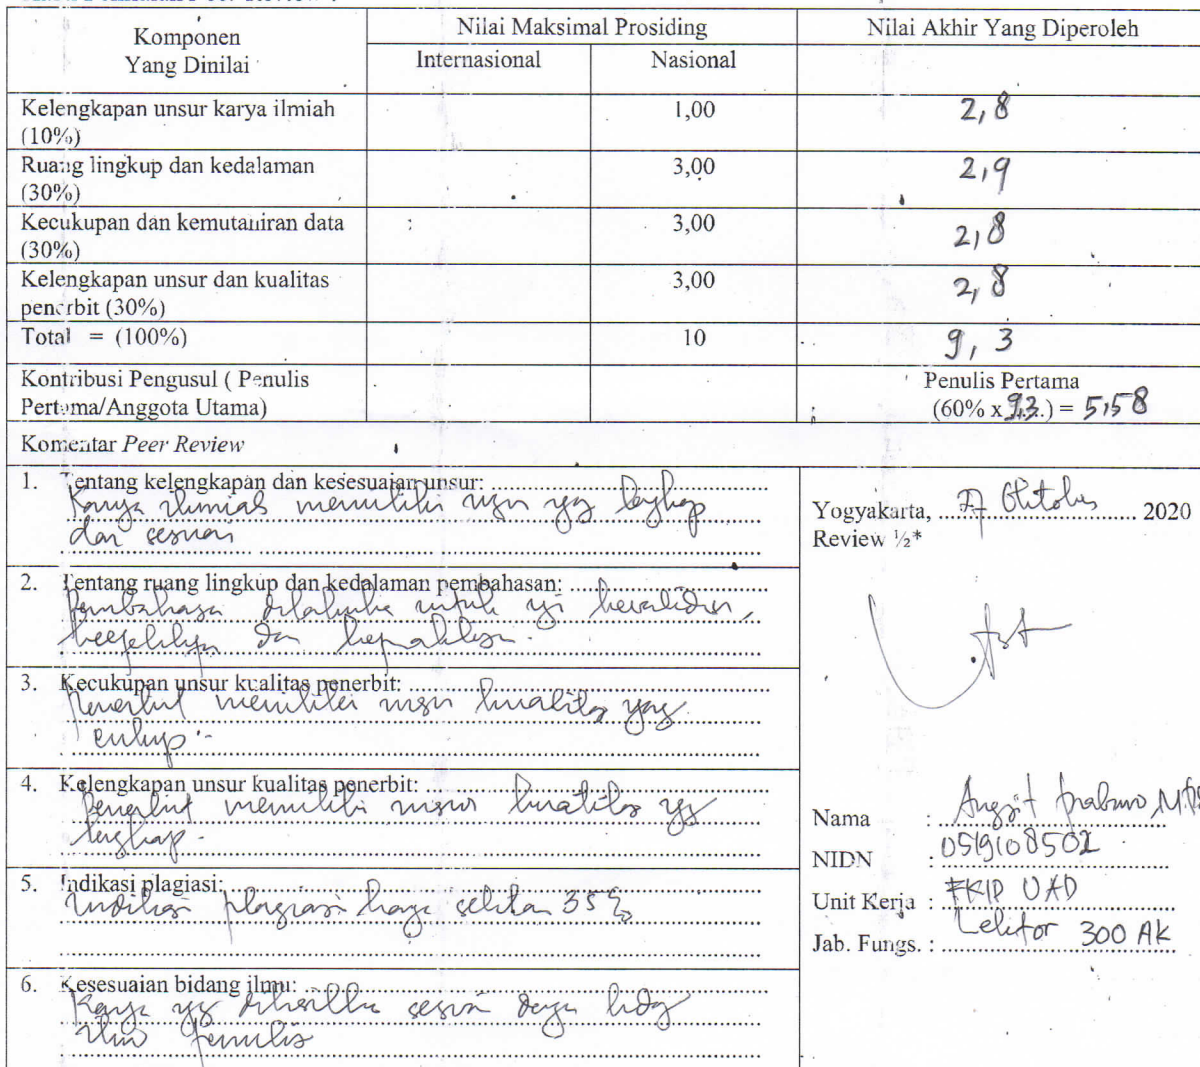 Komponen
Yang Dinilai
Nilai Maksimal Prosiding
Nilai Akhir Yang Diperoleh
Internasional
Nasional
Kelengkapan unsur karya ilmiah
(10%)
1,00
2,8
Ruang lingkup dan kedalaman
(30%)
3,00
2,9
Kecukupan dan kemutahiran data
(30%)
3,00
2,8
Kelengkapan unsur dan kualitas
penerbit (30%)
3,00
2,8
Total = (100%)
10
9,3
Kontribusi Pengusul ( Penulis
Pertama/Anggota Utama)
Penulis Pertama
(60% x 9,3.) = 5,58
Komentar Peer Review
1. Tentang kelengkapan dan kesesuaian unsur:
Karya ilmiah memiliki yg lengkap
dan sesuai
2. Tentang ruang lingkup dan kedalaman pembahasan:
dan
3. Kecukupan unsur kualitas penerbit:
Penerbit memiliki unsur kualitas yang
cukup.
4. Kelengkapan unsur kualitas penerbit:
Penerbit memiliki unsur kualitas yg
lengkap.
5. Indikasi plagiasi:
Indikasi plagiasi hanya sekitar 35%
6. Kesesuaian bidang ilmu:
Karya yg sesuai
ilmu penulis
Yogyakarta, Oktober 2020
Review ½*
Nama : Anggit Prabowo
NIDN :
Unit Kerja : FKIP UAD
Jab. Fungs. : Lektor 300 AK